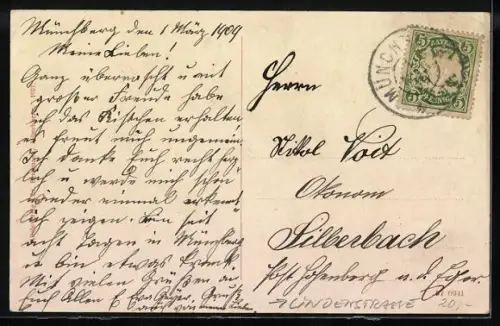 Münchberg den 1 März 1909
Meine Lieben!
Ganz überrascht u mit
großer Freude habe
ich das Kistchen erhalten
es freut mich ungemein.
Ich danke Euch recht herz
lich u werde mich schon
wieder einmal erkennt
lich zeigen. Bin seit
acht Tagen in Münchberg
u bin etwas krank.
Mit vielen Grüßen an
Euch Allen
Gruß
MÜNCHB
5 BAYERN 5
5 PFENNIG 5
Herrn
Nikol Voit
Ökonom
Silberbach
Post Hohenberg a. d. Eger.
→ LINDENSTRASSE 20,-